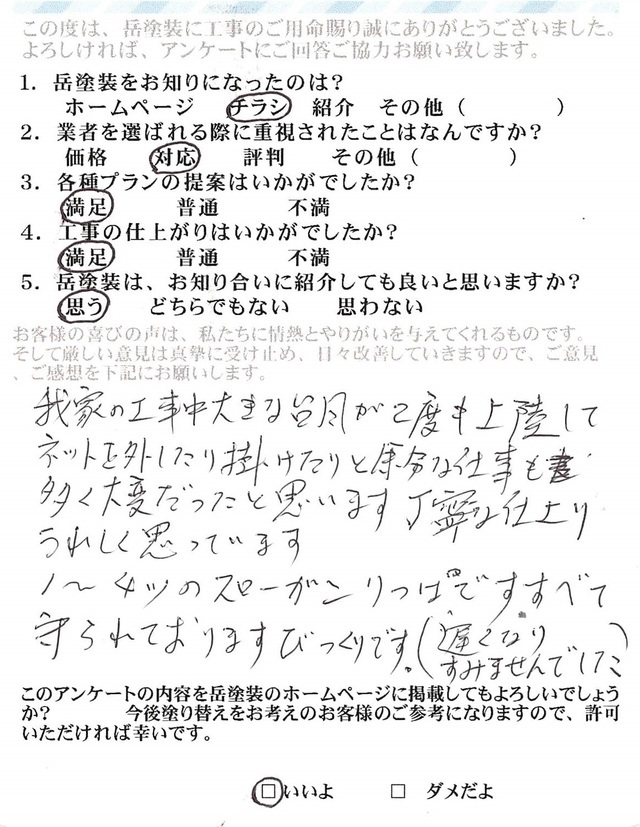 この度は、岳塗装に工事のご用命賜り誠にありがとうございました。
よろしければ、アンケートにご回答ご協力お願い致します。
1．岳塗装をお知りになったのは？
ホームページ　チラシ　紹介　その他（　　　　）
2．業者を選ばれる際に重視されたことはなんですか？
価格　対応　評判　その他（　　　　）
3．各種プランの提案はいかがでしたか？
満足　普通　不満
4．工事の仕上がりはいかがでしたか？
満足　普通　不満
5．岳塗装は、お知り合いに紹介しても良いと思いますか？
思う　どちらでもない　思わない
お客様の喜びの声は、私たちに情熱とやりがいを与えてくれるものです。
そして厳しい意見は真摯に受け止め、日々改善していきますので、ご意見
、ご感想を下記にお願いします。
我家の工事中大きな台風が2度も上陸して
ネットを外したり掛けたりと余分な仕事も
多く大変だったと思います丁寧な仕上り
うれしく思っています
1〜4ツのスローガンりっぱですすべて
守られておりますびっくりです。（遅くなり
すみませんでした）
このアンケートの内容を岳塗装のホームページに掲載してもよろしいでしょう
か？　　今後塗り替えをお考えのお客様のご参考になりますので、許可
いただければ幸いです。
□いいよ　□　ダメだよ